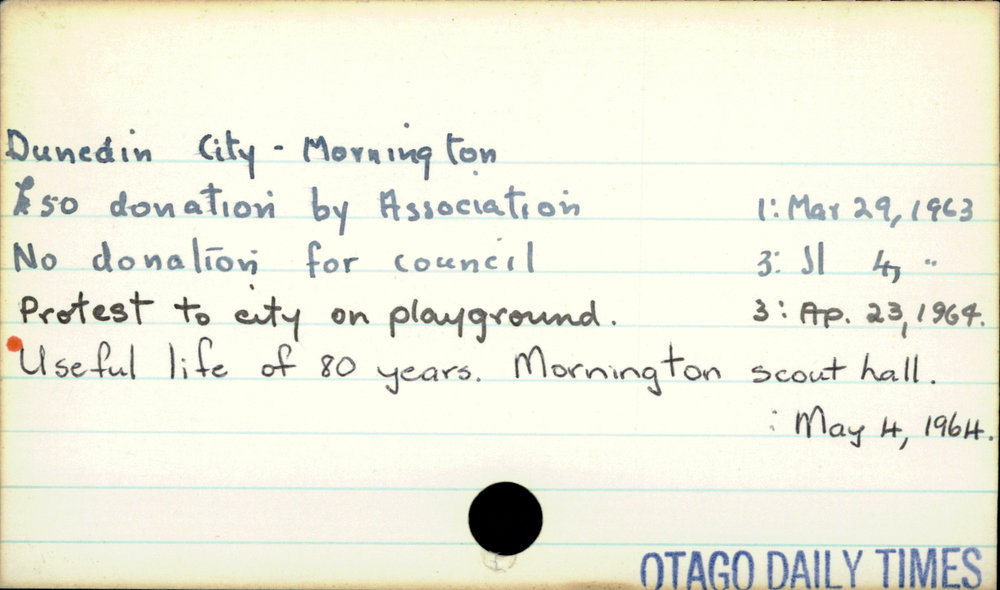 Dunedin City - Mornington
£50 donation by Association 1: Mar 29, 1963
No donation for council 3: Jl 4, "
Protest to city on playground. 3: Ap. 23, 1964.
Useful life of 80 years. Mornington scout hall.
: May 4, 1964.
OTAGO DAILY TIMES